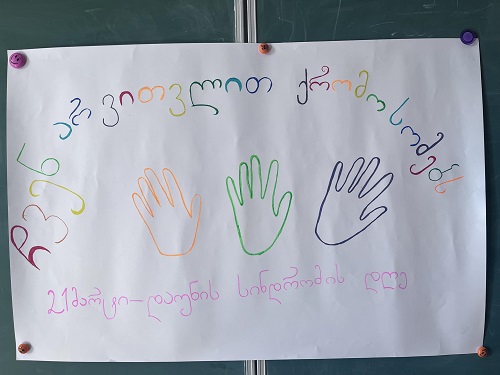 ჩვენ არ ვითვლით ქრომოსომებს
21 მარტი-დაუნის სინდრომის დღე